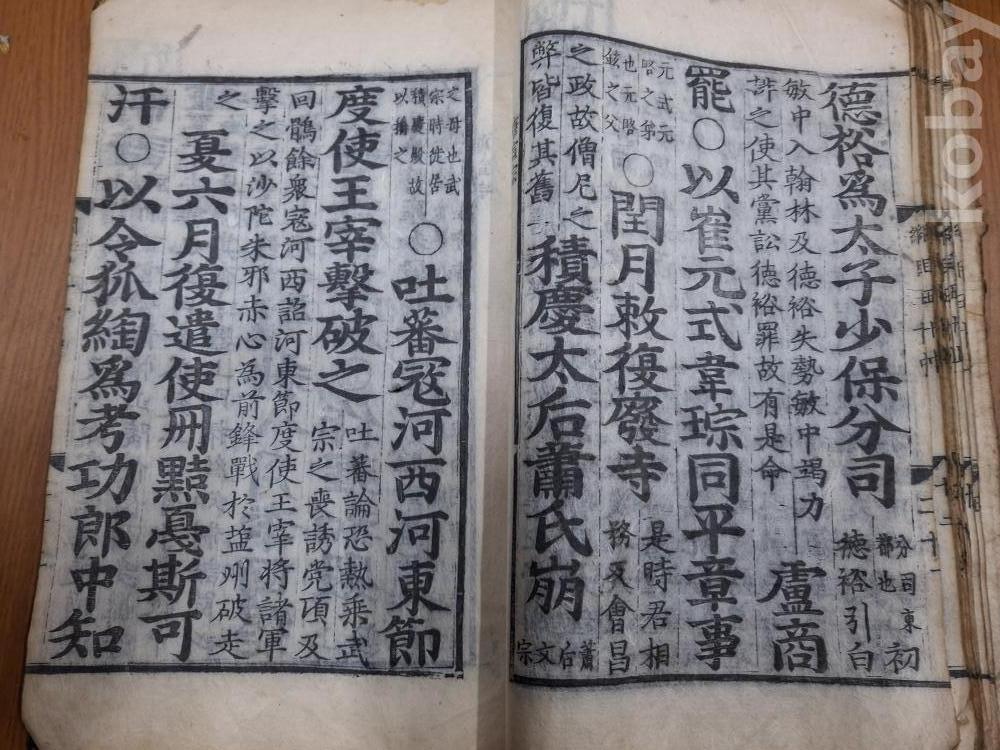 德裕爲太子少保分司
分司東
都也
初
德裕引白
敏中入翰林及德裕失勢敏中竭力
詆之使其黨訟德裕罪故有是命
盧商
罷○以崔元式韋琮同平章事
元式元
畧之弟
也元略
鉉之父
○閏月敕復廢寺
是時君相
務反會昌
之政故僧尼之
弊皆復其舊
積慶太后蕭氏崩
蕭后文宗
之母也武
宗時徙居
積慶殿故
以稱之
○吐蕃寇河西河東節
度使王宰擊破之
吐蕃論恐熱乘武
宗之喪誘党項及
回鶻餘衆寇河西詔河東節度使王宰將諸軍
擊之以沙陀朱邪赤心為前鋒戰於塩州破走
之
夏六月復遣使冊黠戛斯可
汗○以令狐綯爲考功郎中知
kobay